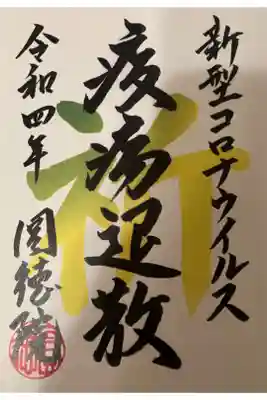 新型コロナウイルス
疫病退散
祈
令和四年 圓徳院